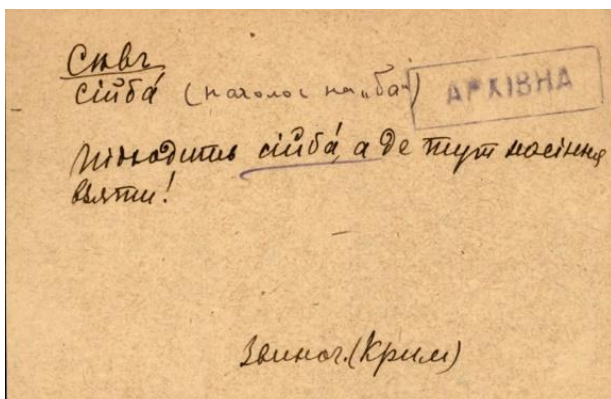 сійба́ (наголос на „ба“)
АРХІВНА
Підходить сійба́, а де тут насіння
взяти!
Звиног. (Крим)